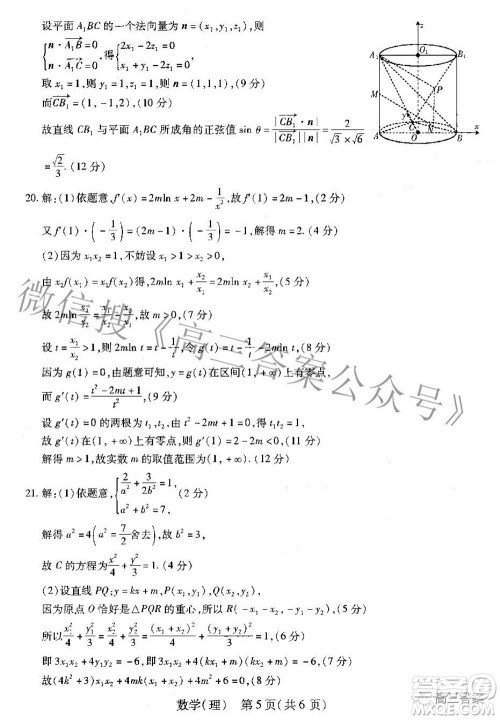 设平面 A₁BC 的一个法向量为 n=(x₁,y₁,z₁),则
{n·A₁B=0, n·A₁C=0, 得{2x₁-2z₁=0, x₁+y₁-2z₁=0,
取 x₁=1,则 y₁=1,z₁=1,故 n=(1,1,1),(9 分)
而CB₁=(1,-1,2),(10 分)
故直线 CB₁ 与平面 A₁BC 所成角的正弦值 sin θ=|CB₁·n|/(|CB₁||n|)=2/(√3×√6)
=√2/3. (12 分)
20. 解:(1)依题意,f′(x)=2mln x+2m-1/x²,故 f′(1)=2m-1,(2 分)
又 f′(1)·(-1/3)=(2m-1)·(-1/3)=-1,解得 m=2. (4 分)
(2)因为 x₁x₂=1,不妨设 x₁>1>x₂>0,
由 x₂f(x₁)=x₁f(x₂)得,2mln x₁/x₂=x₁/x₂-x₂/x₁,(5 分)
设 t=x₁/x₂>1,则 2mln t=t-1/t,令 g(t)=t-1/t-2mln t,(7 分)
因为 g(1)=0,由题意可知,g(t)在区间(1,+∞)上有零点.
而 g′(t)=(t²-2mt+1)/t²,(9 分)
设 g′(t)=0 的两根为 t₁,t₂,由于 t₁t₂=1,
故 g′(t)在(1,+∞)上有零点,故 g′(1)<0,(11 分)
解得 m>1,故实数 m 的取值范围为(1,+∞).(12 分)
21. 解:(1)依题意,{2/a²+3/(2b²)=1, (2 分)
解得 a²=4(a²=7/2舍去),
故 C 的方程为 x²/4+y²/3=1. (4 分)
(2)设直线 PQ:y=kx+m,P(x₁,y₁),Q(x₂,y₂),
因为原点 O 恰好是△PQR 的重心,所以 R(-x₁-x₂,-y₁-y₂),(5 分)
所以x₁²/4+y₁²/3=x₂²/4+y₂²/3=(x₁+x₂)²/4+(y₁+y₂)²/3=1,(6 分)
即 3x₁x₂+4y₁y₂=-6,即 3x₁x₂+4(kx₁+m)(kx₂+m)=-6,
故(4k²+3)x₁x₂+4km(x₁+x₂)+4m²=-6,(7 分)
数学(理) 第 5 页(共 6 页)
微信搜《高三答案公众号》